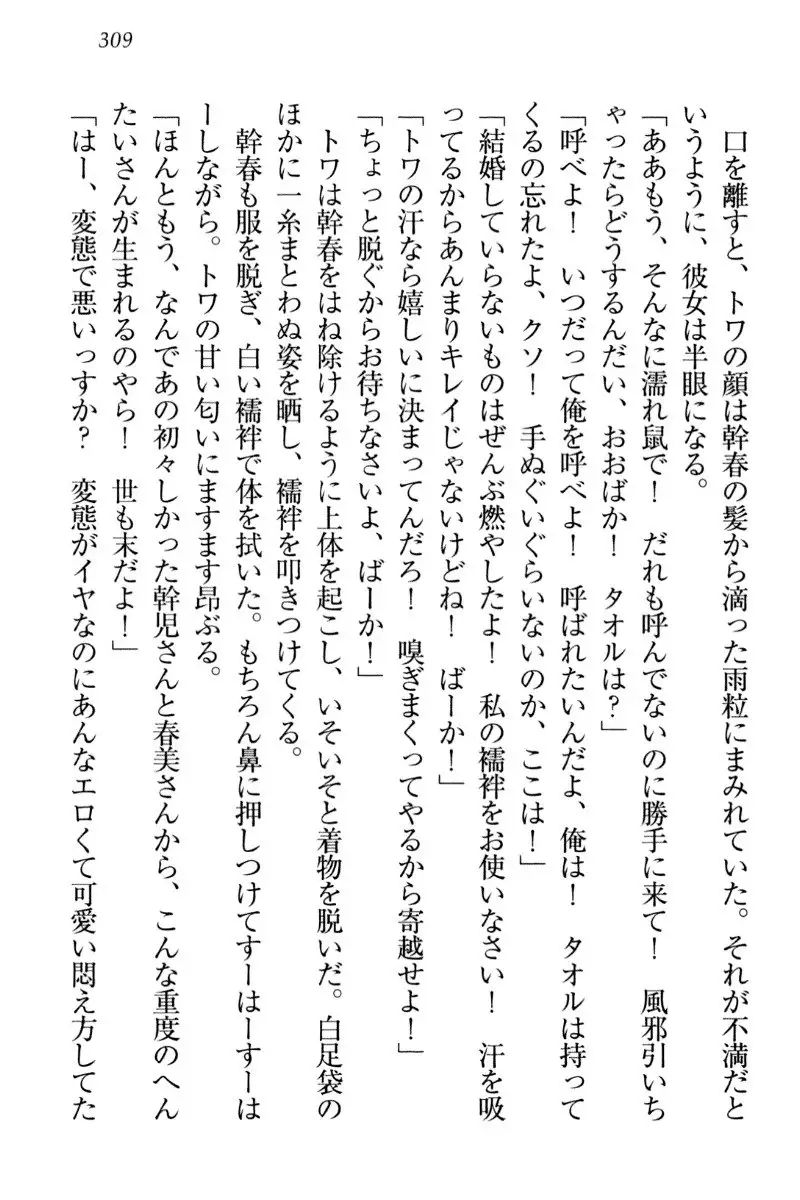 309
　口を離すと、トワの顔は幹春の髪から滴った雨粒にまみれていた。それが不満だと
いうように、彼女は半眼になる。
「ああもう、そんなに濡れ鼠で！　だれも呼んでないのに勝手に来て！　風邪引いち
ゃったらどうするんだい、おおばか！　タオルは？」
「呼べよ！　いつだって俺を呼べよ！　呼ばれたいんだよ、俺は！　タオルは持って
くるの忘れたよ、クソ！　手ぬぐいぐらいないのか、ここは！」
「結婚していらないものはぜんぶ燃やしたよ！　私の襦袢をお使いなさい！　汗を吸
ってるからあんまりキレイじゃないけどね！　ばーか！」
「トワの汗なら嬉しいに決まってんだろ！　嗅ぎまくってやるから寄越せよ！」
「ちょっと脱ぐからお待ちなさいよ、ばーか！」
　トワは幹春をはね除けるように上体を起こし、いそいそと着物を脱いだ。白足袋の
ほかに一糸まとわぬ姿を晒し、襦袢を叩きつけてくる。
　幹春も服を脱ぎ、白い襦袢で体を拭いた。もちろん鼻に押しつけてすーはーすーは
ーしながら。トワの甘い匂いにますます昂ぶる。
「ほんともう、なんであの初々しかった幹児さんと春美さんから、こんな重度のへん
たいさんが生まれるのやら！　世も末だよ！」
「はー、変態で悪いっすか？　変態がイヤなのにあんなエロくて可愛い悶え方してた